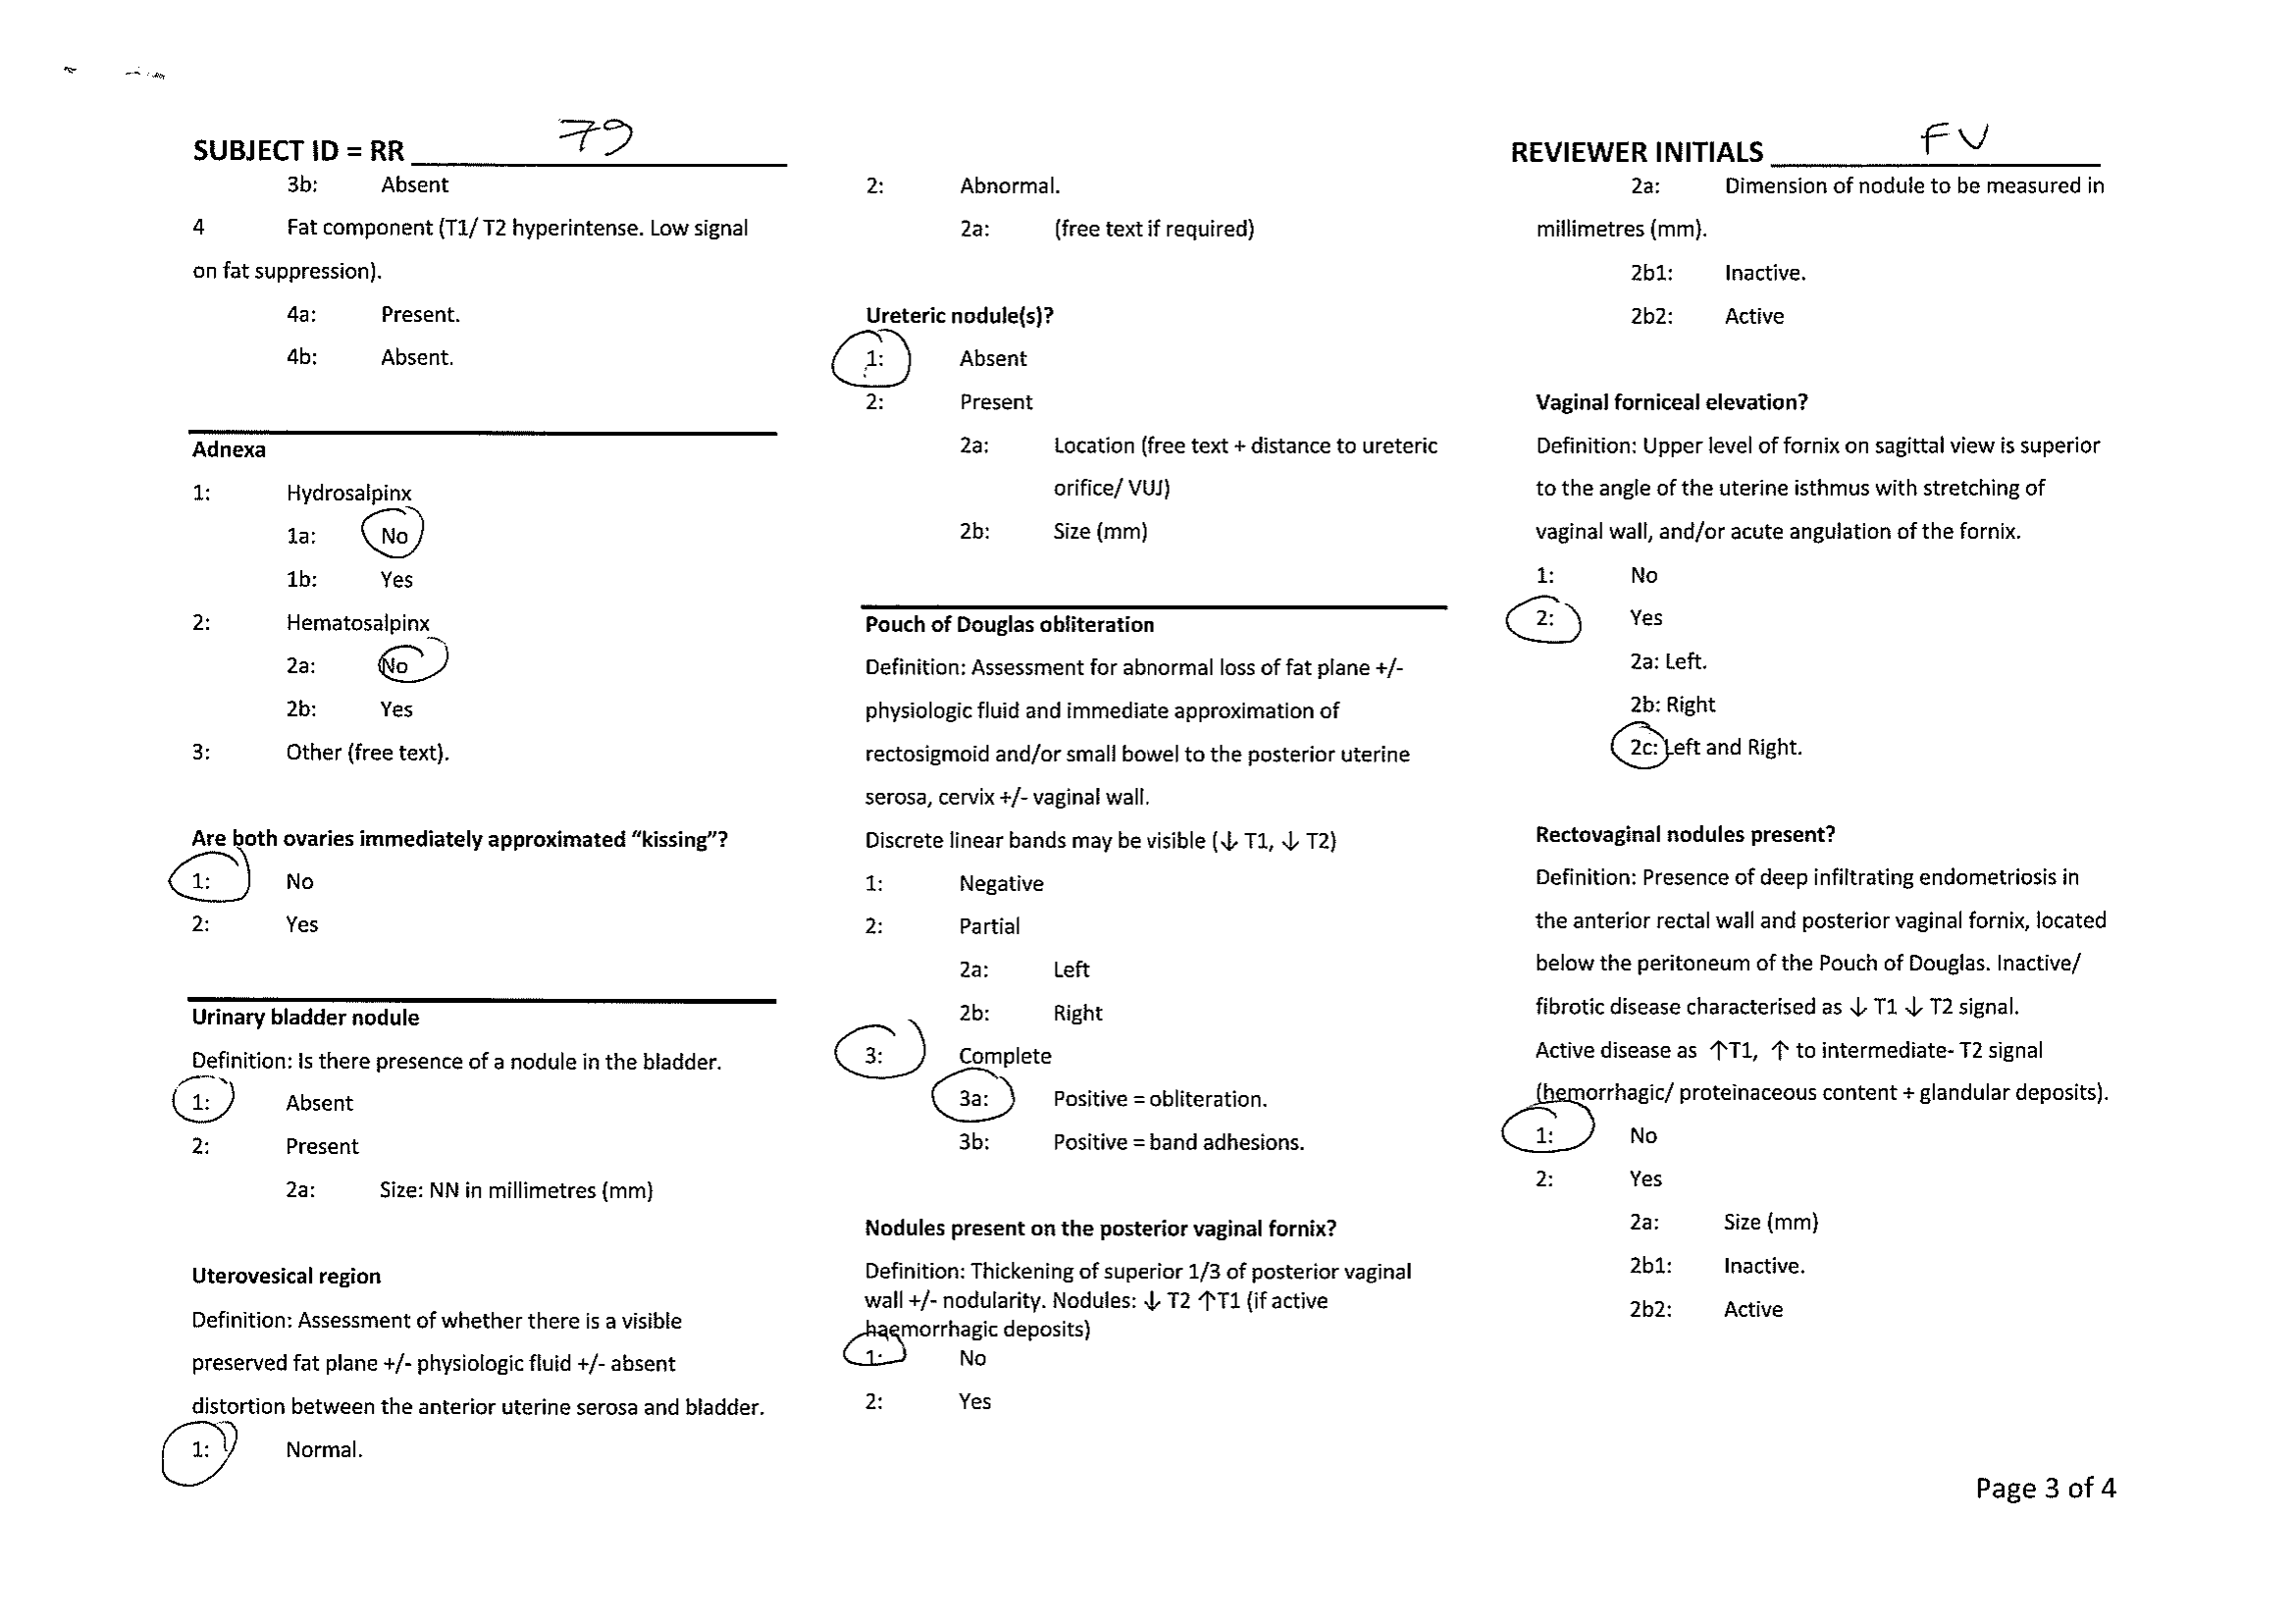 SUBJECT ID = RR 79
REVIEWER INITIALS FV
3b: Absent
4 Fat component (T1/ T2 hyperintense. Low signal
on fat suppression).
4a: Present.
4b: Absent.
Adnexa
1: Hydrosalpinx
1a: No
1b: Yes
2: Hematosalpinx
2a: No
2b: Yes
3: Other (free text).
Are both ovaries immediately approximated “kissing”?
1: No
2: Yes
Urinary bladder nodule
Definition: Is there presence of a nodule in the bladder.
1: Absent
2: Present
2a: Size: NN in millimetres (mm)
Uterovesical region
Definition: Assessment of whether there is a visible
preserved fat plane +/- physiologic fluid +/- absent
distortion between the anterior uterine serosa and bladder.
1: Normal.
2: Abnormal.
2a: (free text if required)
Ureteric nodule(s)?
1: Absent
2: Present
2a: Location (free text + distance to ureteric
orifice/ VUJ)
2b: Size (mm)
Pouch of Douglas obliteration
Definition: Assessment for abnormal loss of fat plane +/-
physiologic fluid and immediate approximation of
rectosigmoid and/or small bowel to the posterior uterine
serosa, cervix +/- vaginal wall.
Discrete linear bands may be visible (↓ T1, ↓ T2)
1: Negative
2: Partial
2a: Left
2b: Right
3: Complete
3a: Positive = obliteration.
3b: Positive = band adhesions.
Nodules present on the posterior vaginal fornix?
Definition: Thickening of superior 1/3 of posterior vaginal
wall +/- nodularity. Nodules: ↓ T2 ↑T1 (if active
haemorrhagic deposits)
1: No
2: Yes
2a: Dimension of nodule to be measured in
millimetres (mm).
2b1: Inactive.
2b2: Active
Vaginal forniceal elevation?
Definition: Upper level of fornix on sagittal view is superior
to the angle of the uterine isthmus with stretching of
vaginal wall, and/or acute angulation of the fornix.
1: No
2: Yes
2a: Left.
2b: Right
2c: Left and Right.
Rectovaginal nodules present?
Definition: Presence of deep infiltrating endometriosis in
the anterior rectal wall and posterior vaginal fornix, located
below the peritoneum of the Pouch of Douglas. Inactive/
fibrotic disease characterised as ↓ T1 ↓ T2 signal.
Active disease as ↑T1, ↑ to intermediate- T2 signal
(hemorrhagic/ proteinaceous content + glandular deposits).
1: No
2: Yes
2a: Size (mm)
2b1: Inactive.
2b2: Active
Page 3 of 4